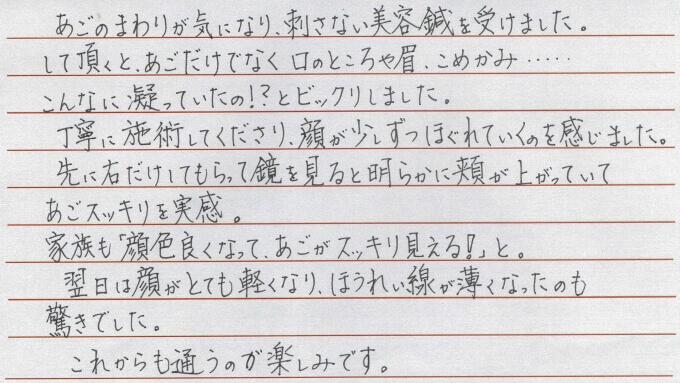 あごのまわりが気になり、刺さない美容鍼を受けました。
して頂くと、あごだけでなく口のところや眉、こめかみ……
こんなに凝っていたの!?とビックリしました。
丁寧に施術してくださり、顔が少しずつほぐれていくのを感じました。
先に右だけしてもらって鏡を見ると明らかに頬が上がっていて
あごスッキリを実感。
家族も「顔色良くなって、あごがスッキリ見える!」と。
翌日は顔がとても軽くなり、ほうれい線が薄くなったのも
驚きでした。
これからも通うのが楽しみです。